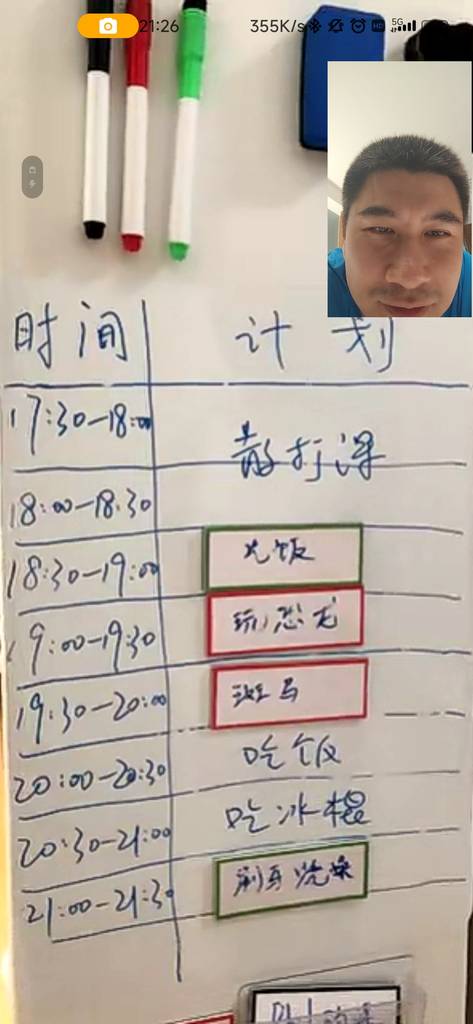 21:26 355K/s 5G
时间 计划
17:30-18:00
散打课
18:00-18:30
18:30-19:00 吃饭
19:00-19:30 玩恐龙
19:30-20:00 斑马
20:00-20:30 吃饭
20:30-21:00 吃冰棍
21:00-21:30 刷牙洗澡